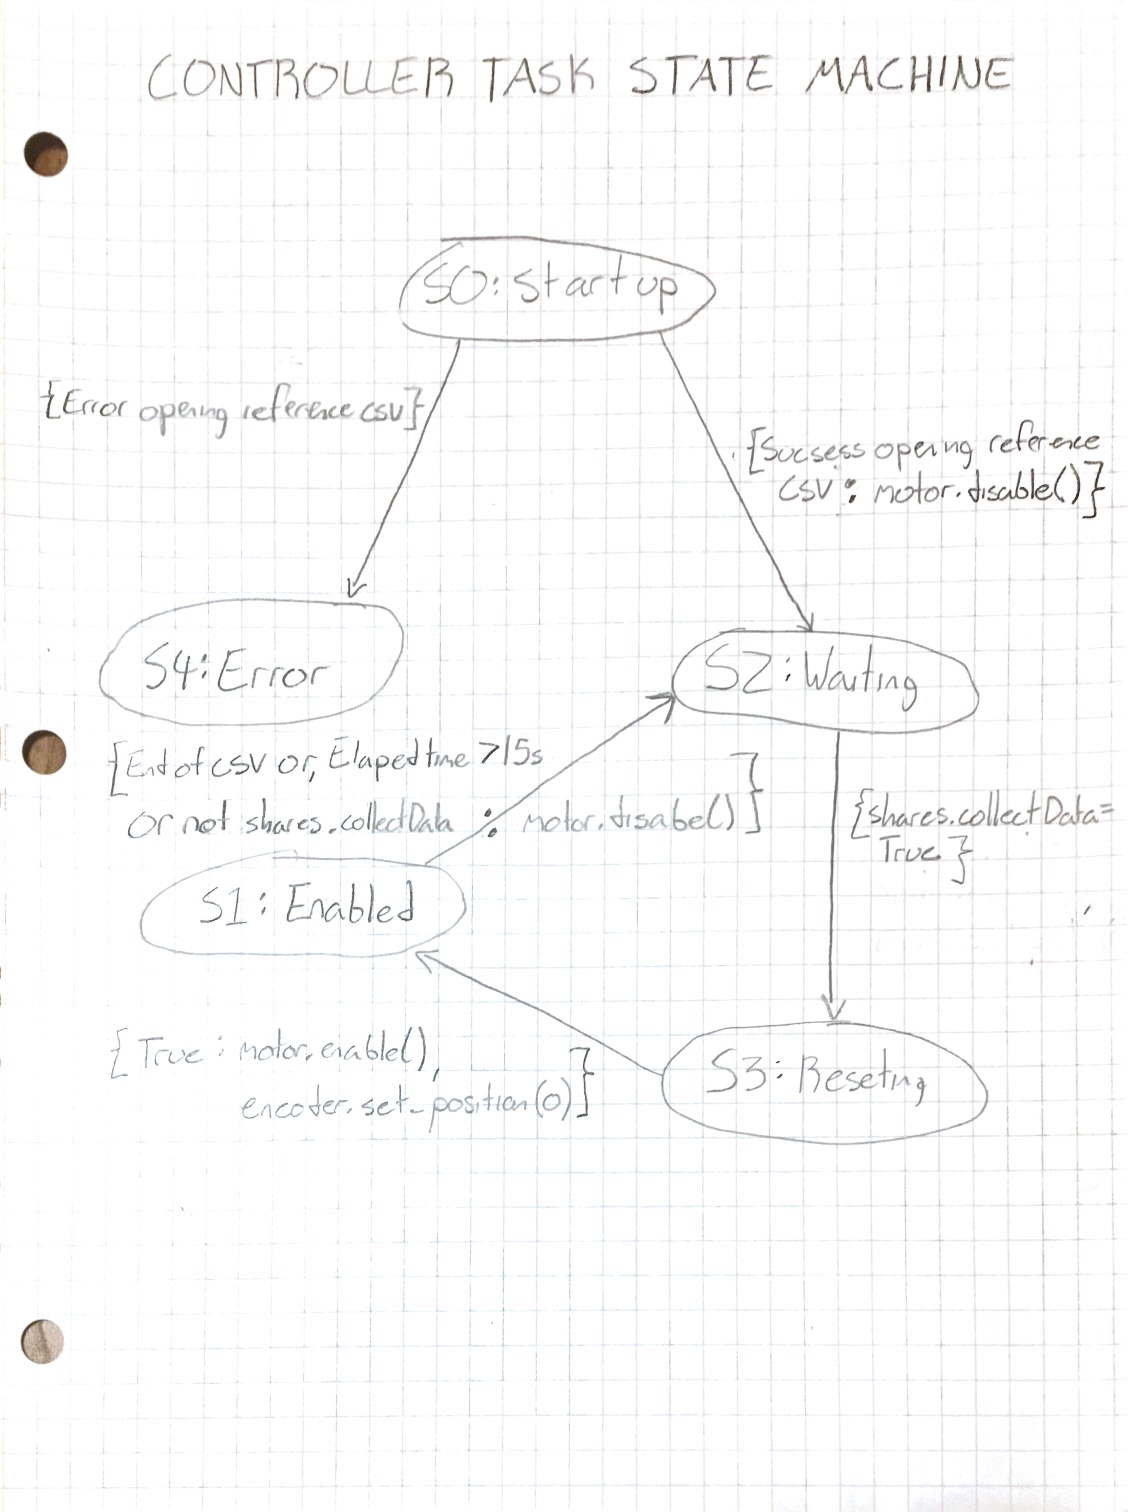 CONTROLLER TASK STATE MACHINE
S0: Startup
{Error opening reference CSV}
{Sucsess opening reference
CSV : motor.disable()}
S4: Error
S2: Waiting
{End of CSV or, Elaped time >15s
or not shares.collectData : motor.disabe()}
{shares.collectData=
True}
S1: Enabled
{True : motor.enable(),
encoder.set_position(0)}
S3: Reseting